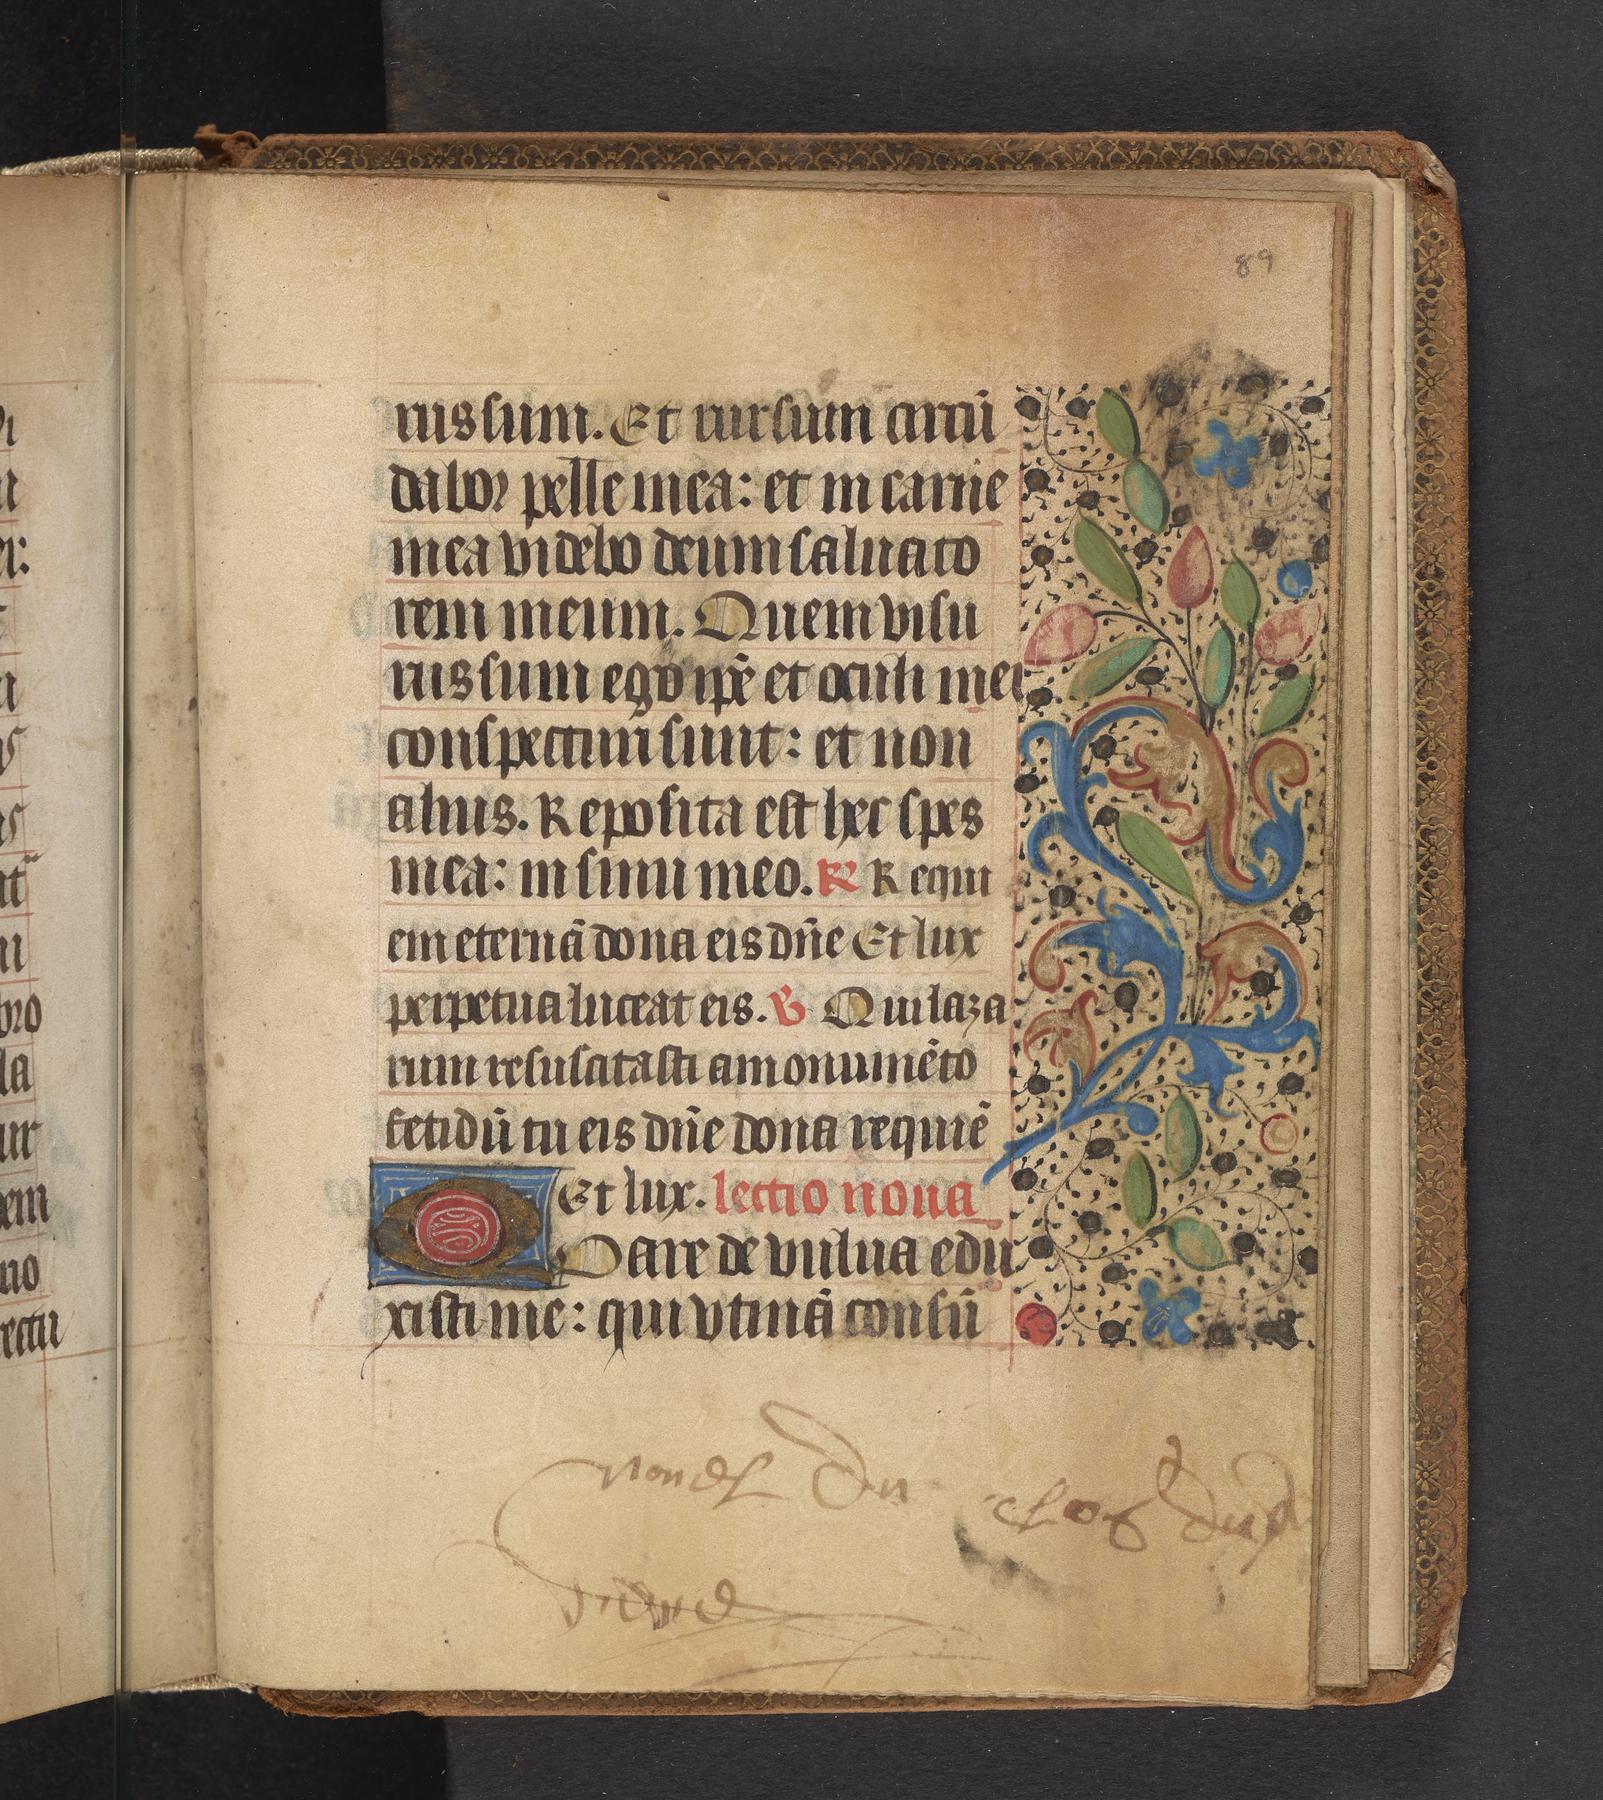 89
rus sum. Et rursum circū
dabor pelle mea: et in carne
mea videbo deum saluato
rem meum. Quem visu
rus sum ego ip̄e et oculi mei
conspecturi sunt: et non
alius. Reposita est hec spes
mea: in sinu meo. R Requi
em eternā dona eis dn̄e Et lux
perpetua luceat eis. V Qui laza
rum resuscitasti a monumēto
fetidū tu eis dn̄e dona requiē
Et lux. lectio nona
Quare de vulua edu
xisti me: qui vtinā consū
du